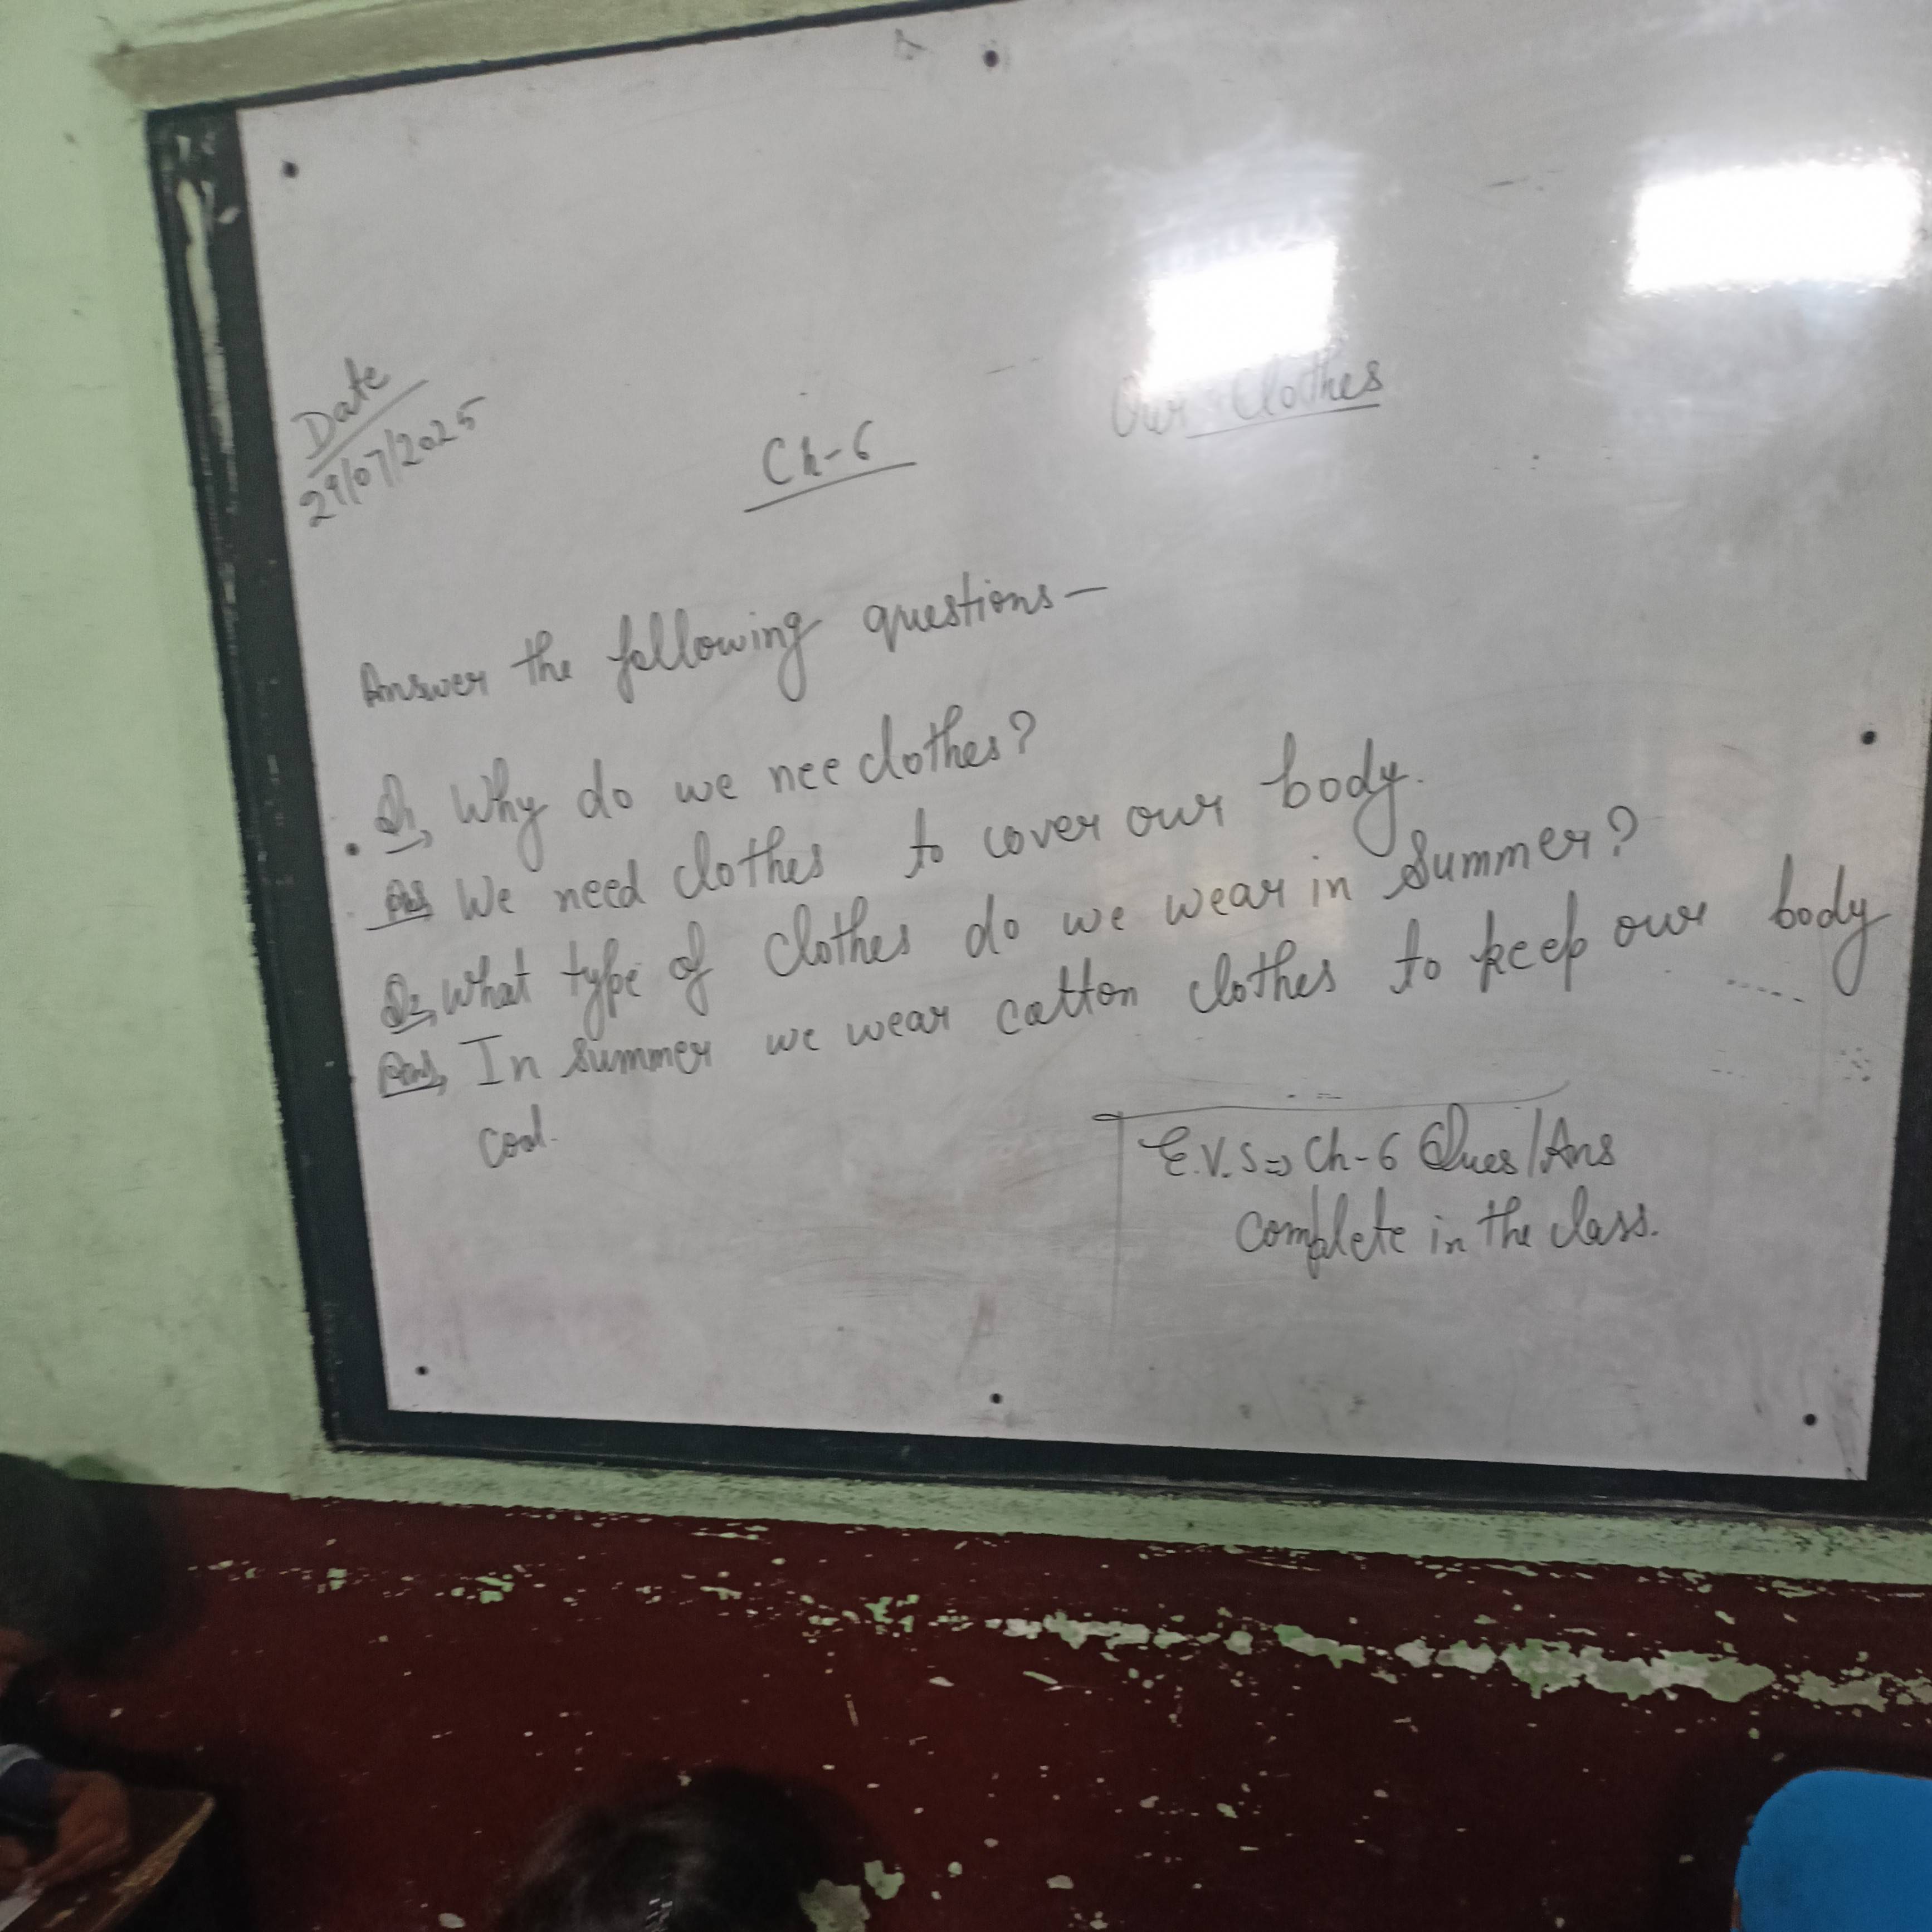 Date
29/07/2025
Ch-6 Our Clothes
Answer the following questions—
Q1, Why do we nee clothes?
Ans, We need clothes to cover our body.
Q2, What type of clothes do we wear in Summer?
Ans, In summer we wear catton clothes to keep our body
cool.
E.V.S⇒ Ch-6 Ques/Ans
complete in the class.